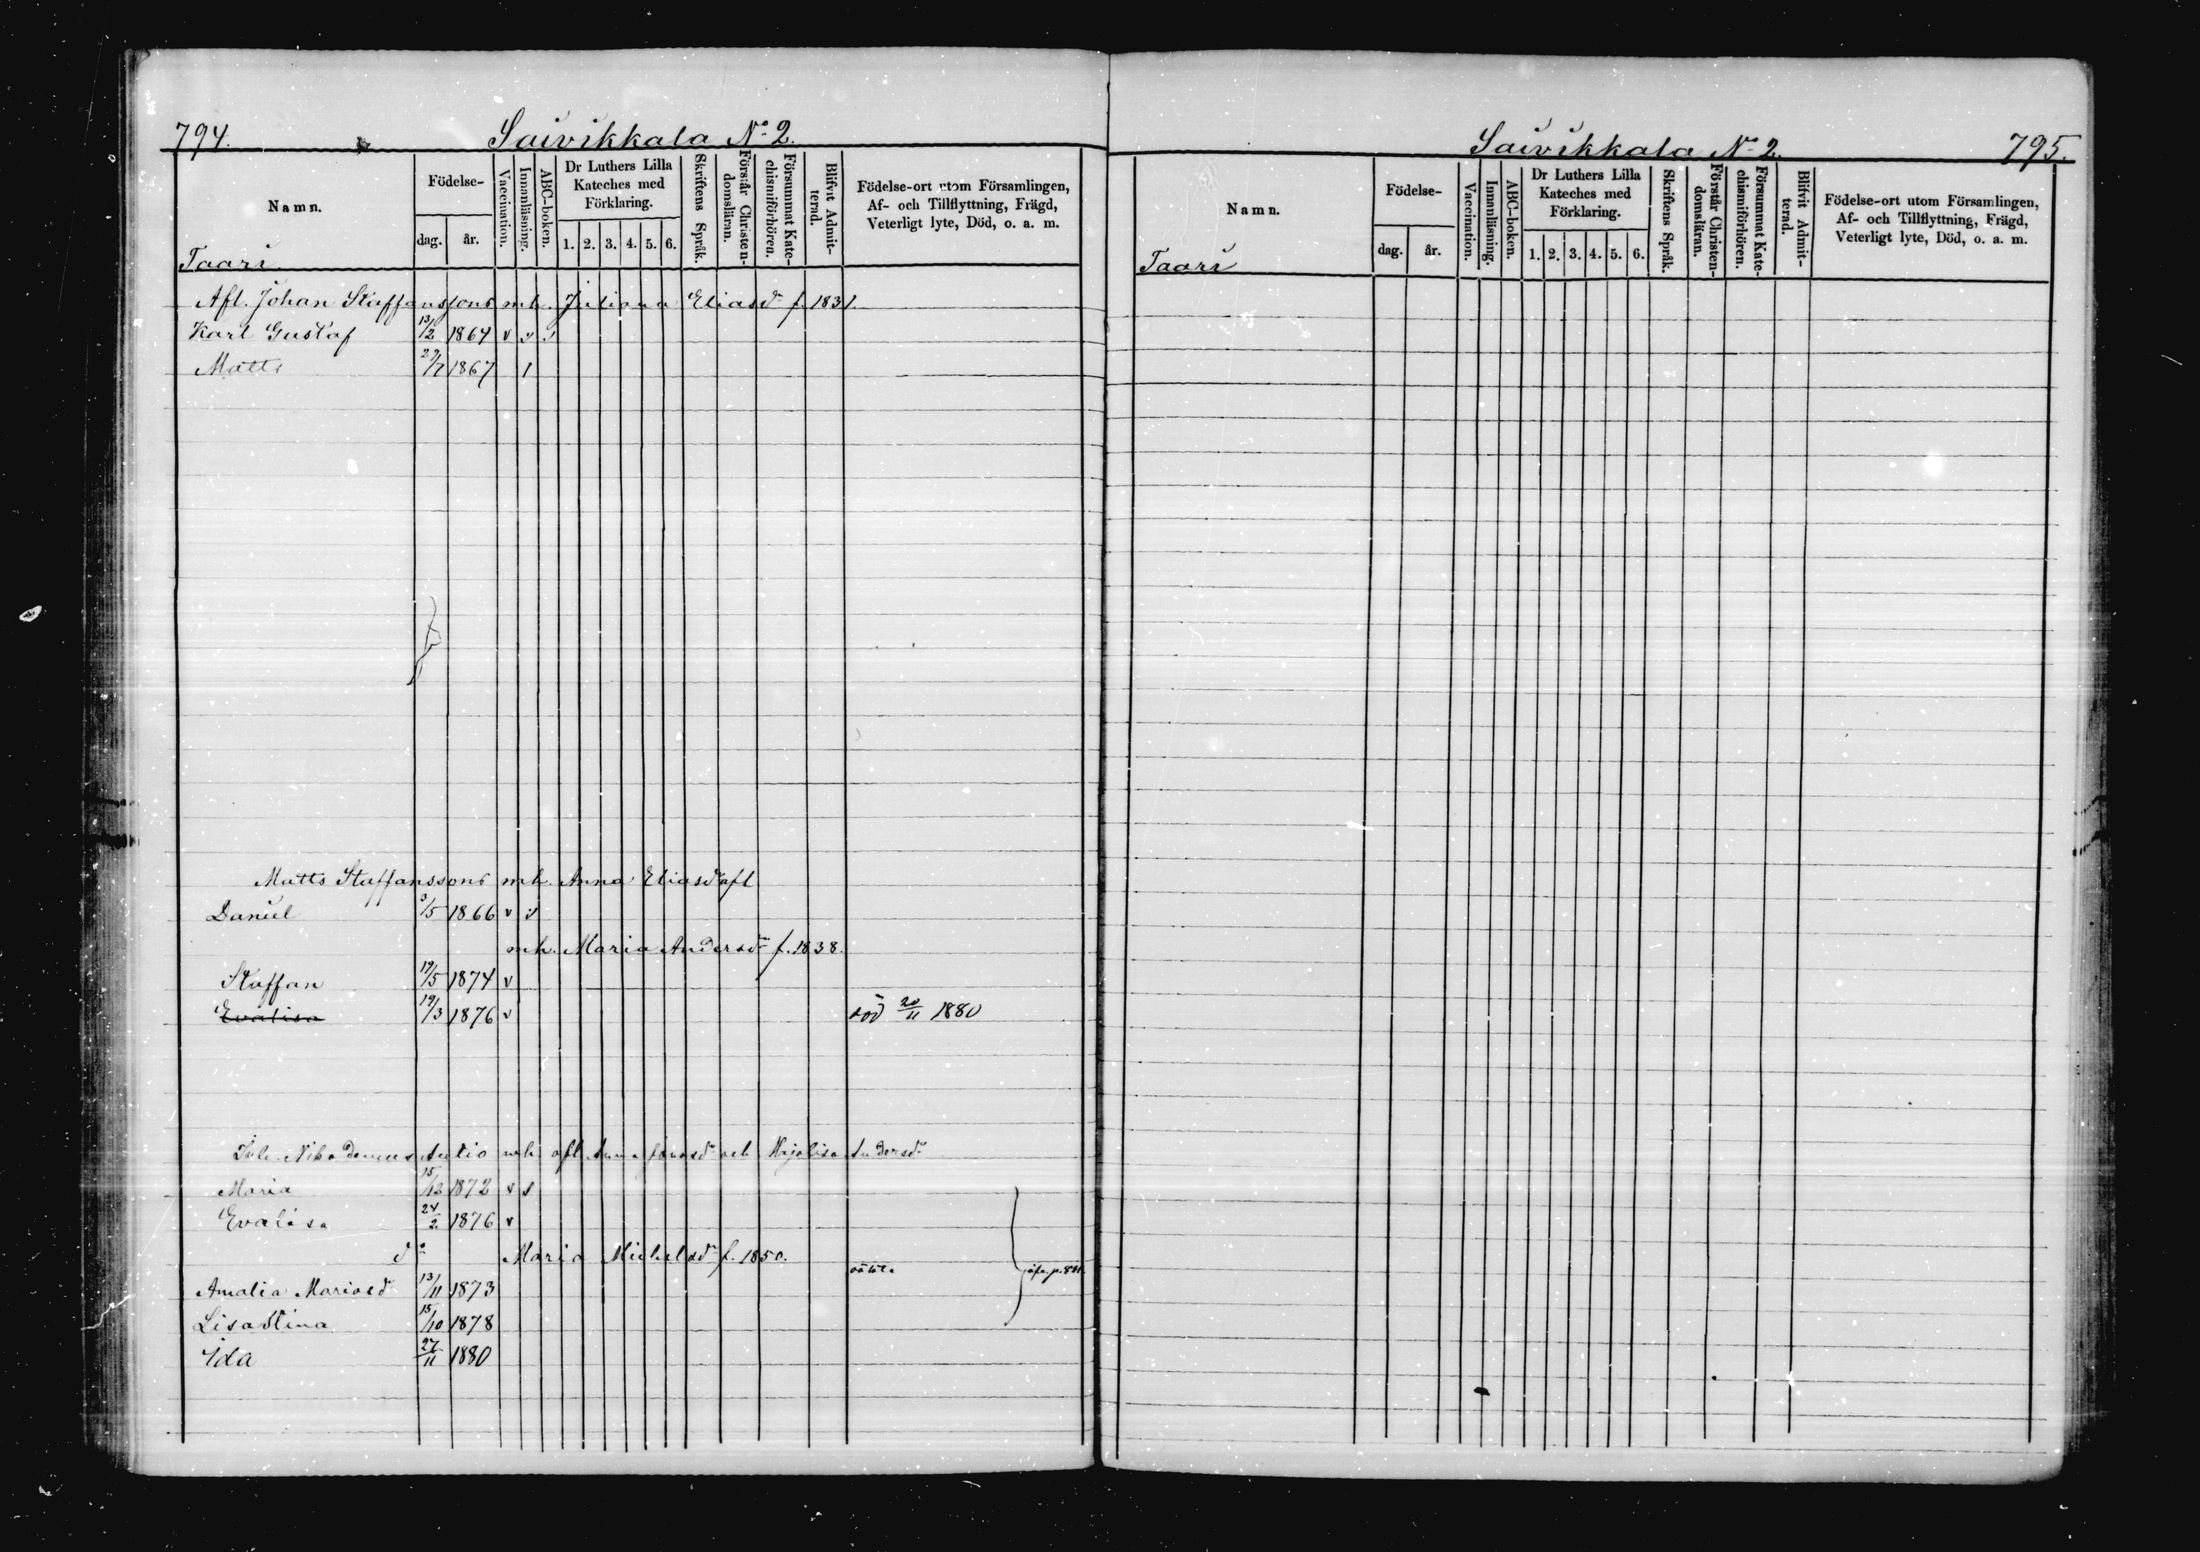 794. Saivikkala No 2.
Namn.
Födelse-
dag. år.
Vaccination.
Innanläsning.
ABC-boken.
Dr Luthers Lilla Kateches med Förklaring.
1. 2. 3. 4. 5. 6.
Skriftens Språk.
Förstår Christendomsläran.
Försummat Katechismiförhören.
Blifvit Admitterad.
Födelse-ort utom Församlingen, Af- och Tillflyttning, Frägd, Veterligt lyte, Död, o. a. m.
Taari
Afl. Johan Staffanssons mh. Juliana Eliasdr f. 1831.
Karl Gustaf 13/2 1864 v v
Matts 29/7 1867
Matts Staffanssons mh. Anna Eliasd afl
Daniel 3/5 1866 v v
mh. Maria Andersdr f. 1838.
Staffan 19/5 1874 v
Evalisa 19/3 1876 v död 20/11 1880
Nikodemus Autio mh. afl Anna och Majalisa Andersdr
Maria 15/12 1872 v
Evalisa 24/2 1876 v
do Maria Michelsdr f. 1850.
Amalia Mariasd 13/11 1873
Lisastina 15/10 1878
Ida 27/11 1880
Saivikkala No 2. 795.
Namn.
Födelse-
dag. år.
Vaccination.
Innanläsning.
ABC-boken.
Dr Luthers Lilla Kateches med Förklaring.
1. 2. 3. 4. 5. 6.
Skriftens Språk.
Förstår Christendomsläran.
Försummat Katechismiförhören.
Blifvit Admitterad.
Födelse-ort utom Församlingen, Af- och Tillflyttning, Frägd, Veterligt lyte, Död, o. a. m.
Taari